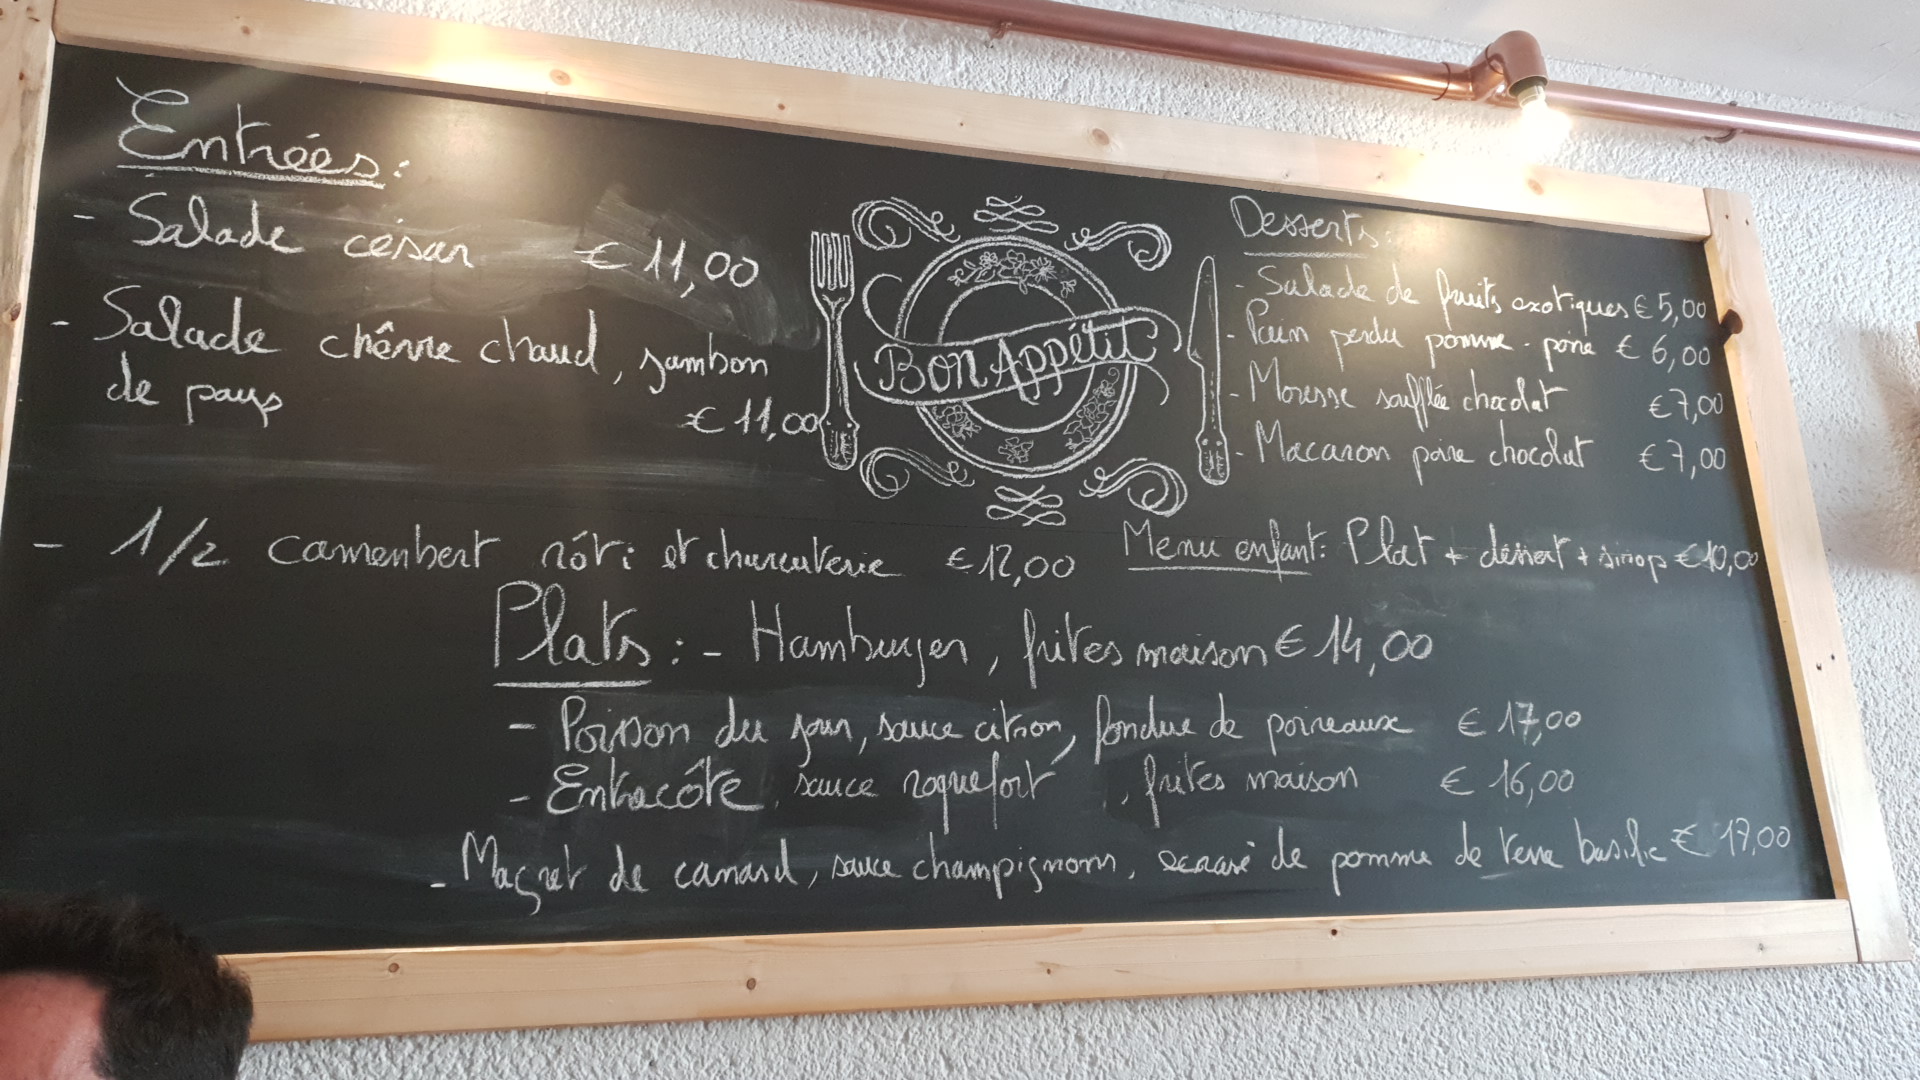 Entrées :
- Salade césar € 11,00
- Salade chèvre chaud, jambon
de pays € 11,00
- 1/2 camenbert rôti et charcuterie € 12,00
Bon Appétit
Desserts :
- Salade de fruits exotiques € 5,00
- Pain perdu pomme - poire € 6,00
- Mousse soufflée chocolat € 7,00
- Macaron poire chocolat € 7,00
Menu enfant : Plat + déssert + sirop € 10,00
Plats : - Hamburger, frites maison € 14,00
- Poisson du jour, sauce citron, fondue de poireaux € 17,00
- Entrecôte, sauce roquefort, frites maison € 16,00
- Magret de canard, sauce champignons, écrasé de pomme de terre basilic € 17,00